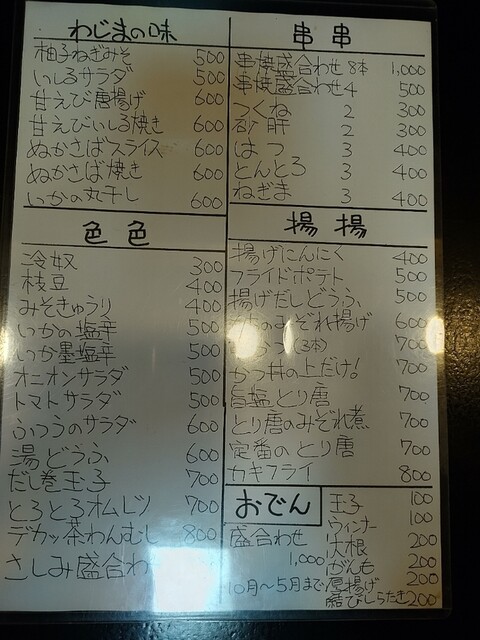 わじまの味
柚子ねぎみそ 500
いしるサラダ 500
甘えび唐揚げ 600
甘えびいしる焼き 600
ぬかさばスライス 600
ぬかさば焼き 600
いかの丸干し 600
色色
冷奴 300
枝豆 400
みそきゅうり 400
いかの塩辛 500
いか墨塩辛 500
オニオンサラダ 500
トマトサラダ 500
ふつうのサラダ 600
湯どうふ 600
だし巻玉子 700
とろとろオムレツ 700
デカッ茶わんむし 800
さしみ盛合わ
串串
串焼盛合わせ 8本 1,000
串焼盛合わせ 4 500
つくね 2 300
砂肝 2 300
はつ 3 400
とんとろ 3 400
ねぎま 3 400
揚揚
揚げにんにく 400
フライドポテト 500
揚げだしどうふ 500
のみぞれ揚げ 600
(3本) 700
かつ丼の上だけ! 700
旨塩とり唐 700
とり唐のみぞれ煮 700
定番のとり唐 700
カキフライ 800
おでん
盛合わせ
1,000
10月〜5月まで
玉子 100
ウィンナー 100
大根 200
がんも 200
厚揚げ 200
結びしらたき 200